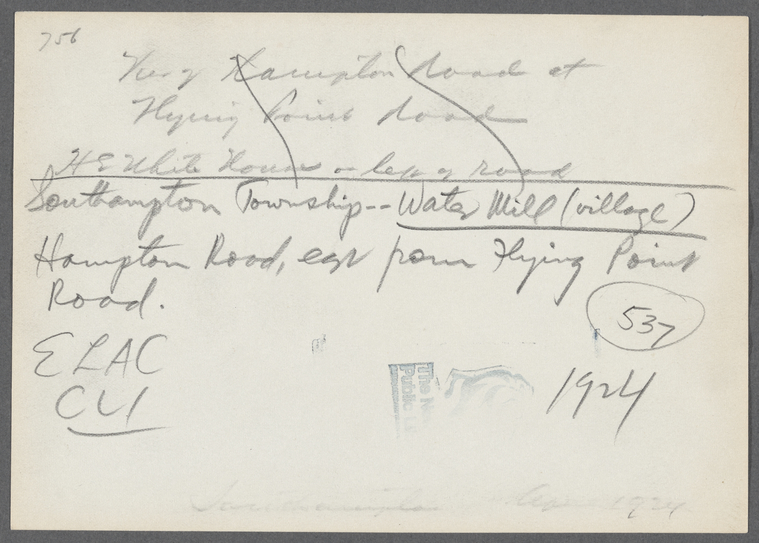 756
View of Hampton Road at
Flying Point Road
H E White House on left of road
Southampton Township--Water Mill (village)
Hampton Road, east from Flying Point
Road.
537
E L A C
1924
The N
Public Li
Southampton 1924